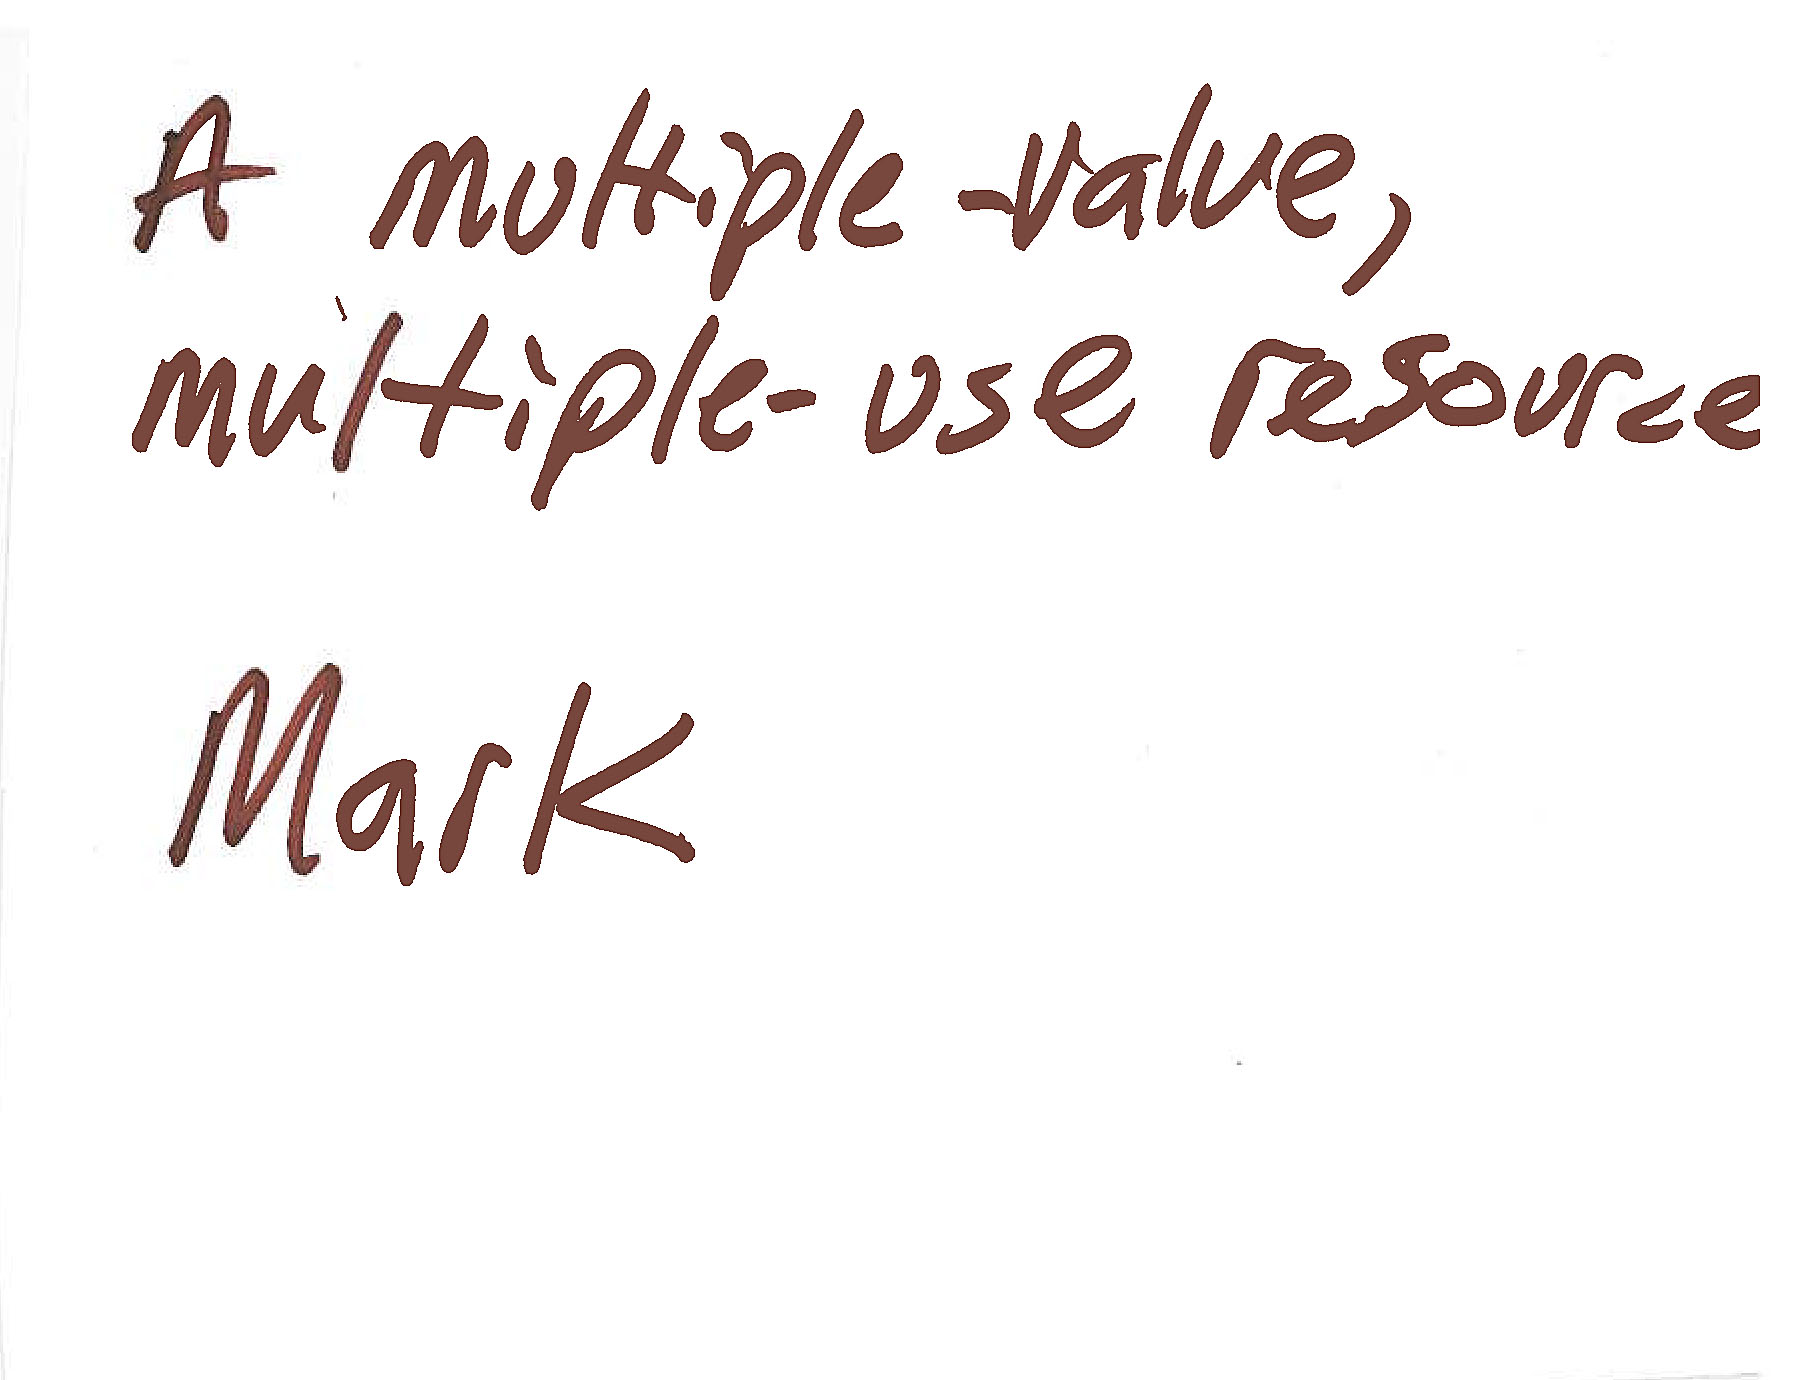 A multiple-value,
multiple-use resource
Mark